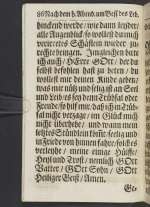 86 Nach dem h. Abend. am Bess. des Leb.
hinckend werde / wie dann leyder /
alle Augenblick / so wollest du mich
verirrtes Schäflein wieder zu
recht bringen. Imgleichen bitt
ich auch / HErr GOtt / der du
selbst befohlen hast zu beten / du
wollest mir deinen Kinde geben /
was mir nütz und selig ist an Seel
und Leib / es sey dem Trübsal oder
Freude / so hilf mir / daß ich in Trüb-
sal nicht verzage / im Glück mich
nicht überhebe / und wann mein
letztes Stündlein kömt / selig und
in Friede von hinnen fahre / solches
verleyhe / meine einige Hülffe /
Heyl und Trost / nemlich GOtt
Vatter / GOtt Sohn / GOtt
Heiliger Geist / Amen.